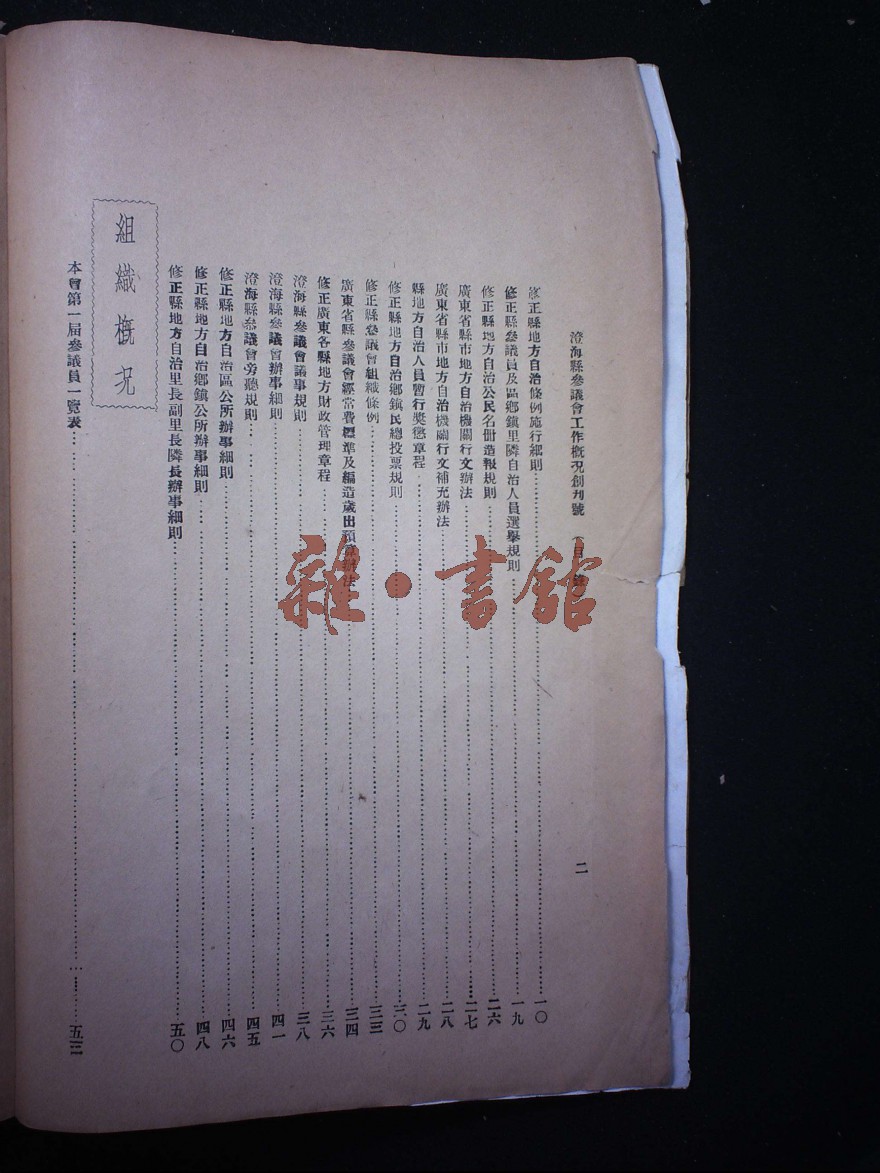 澄海縣參議會工作概況創刋號 （目 錄） 二
修正縣地方自治條例施行細則 一〇
修正縣參議員及區鄉鎮里隣自治人員選舉規則 一九
修正縣地方自治公民名冊造報規則 二六
廣東省縣市地方自治機關行文辦法 二七
廣東省縣市地方自治機關行文補充辦法 二八
縣地方自治人員暫行奬懲章程 二九
修正縣地方自治鄉鎮民總投票規則 三〇
修正縣參議會組織條例 三三
廣東省縣參議會經常費標準及編造歲出預算辦法 三四
修正廣東各縣地方財政管理章程 三六
澄海縣參議會議事規則 三八
澄海縣參議會辦事細則 四一
澄海縣參議會旁聽規則 四五
修正縣地方自治區公所辦事細則 四六
修正縣地方自治鄉鎮公所辦事細則 四八
修正縣地方自治里長副里長隣長辦事細則 五〇
組織概況
本會第一屆參議員一覽表 五三
雜·書館